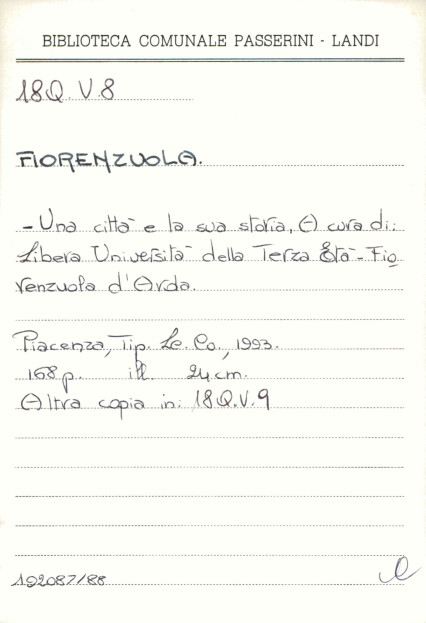 BIBLIOTECA COMUNALE PASSERINI - LANDI
18Q.V.8
FIORENZUOLA.
- Una città e la sua storia, A cura di:
Libera Università della Terza Età - Fio
renzuola d'Arda.
Piacenza, Tip. Le. Co., 1993.
168 p. ill. 24 cm.
Altra copia in: 18Q.V.9
192087/88